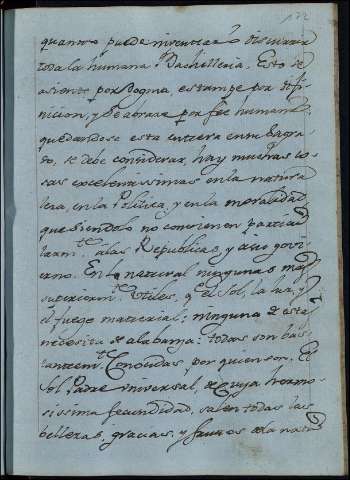 172
quanto puede inventar ò discurrir
toda la humana Bachilleria. Esto se
asiente por Dogma, estampe por difi-
nicion, y se abraze por feé humana
quedandose esta entera en lo Sagra-
do, se debe considerar, hay muchas co-
sas excelentissimas en la natura-
leza, en la Politica, y en la moralidad,
que siendolo no convienen particu-
larm.te à las Republicas, y à su govi-
erno. En lo natural ningunas mas
superiorm.te Utiles, q.e el Sol, la luz, y
el fuego material; ninguna de estas
necesita de alabanza: todas son bas-
tantem.te Conocidas por quien son. El
Sol Padre universal, de cuya hermo-
sissima fecundidad, salen todas las
bellezas, gracias, y frutos de la natu-